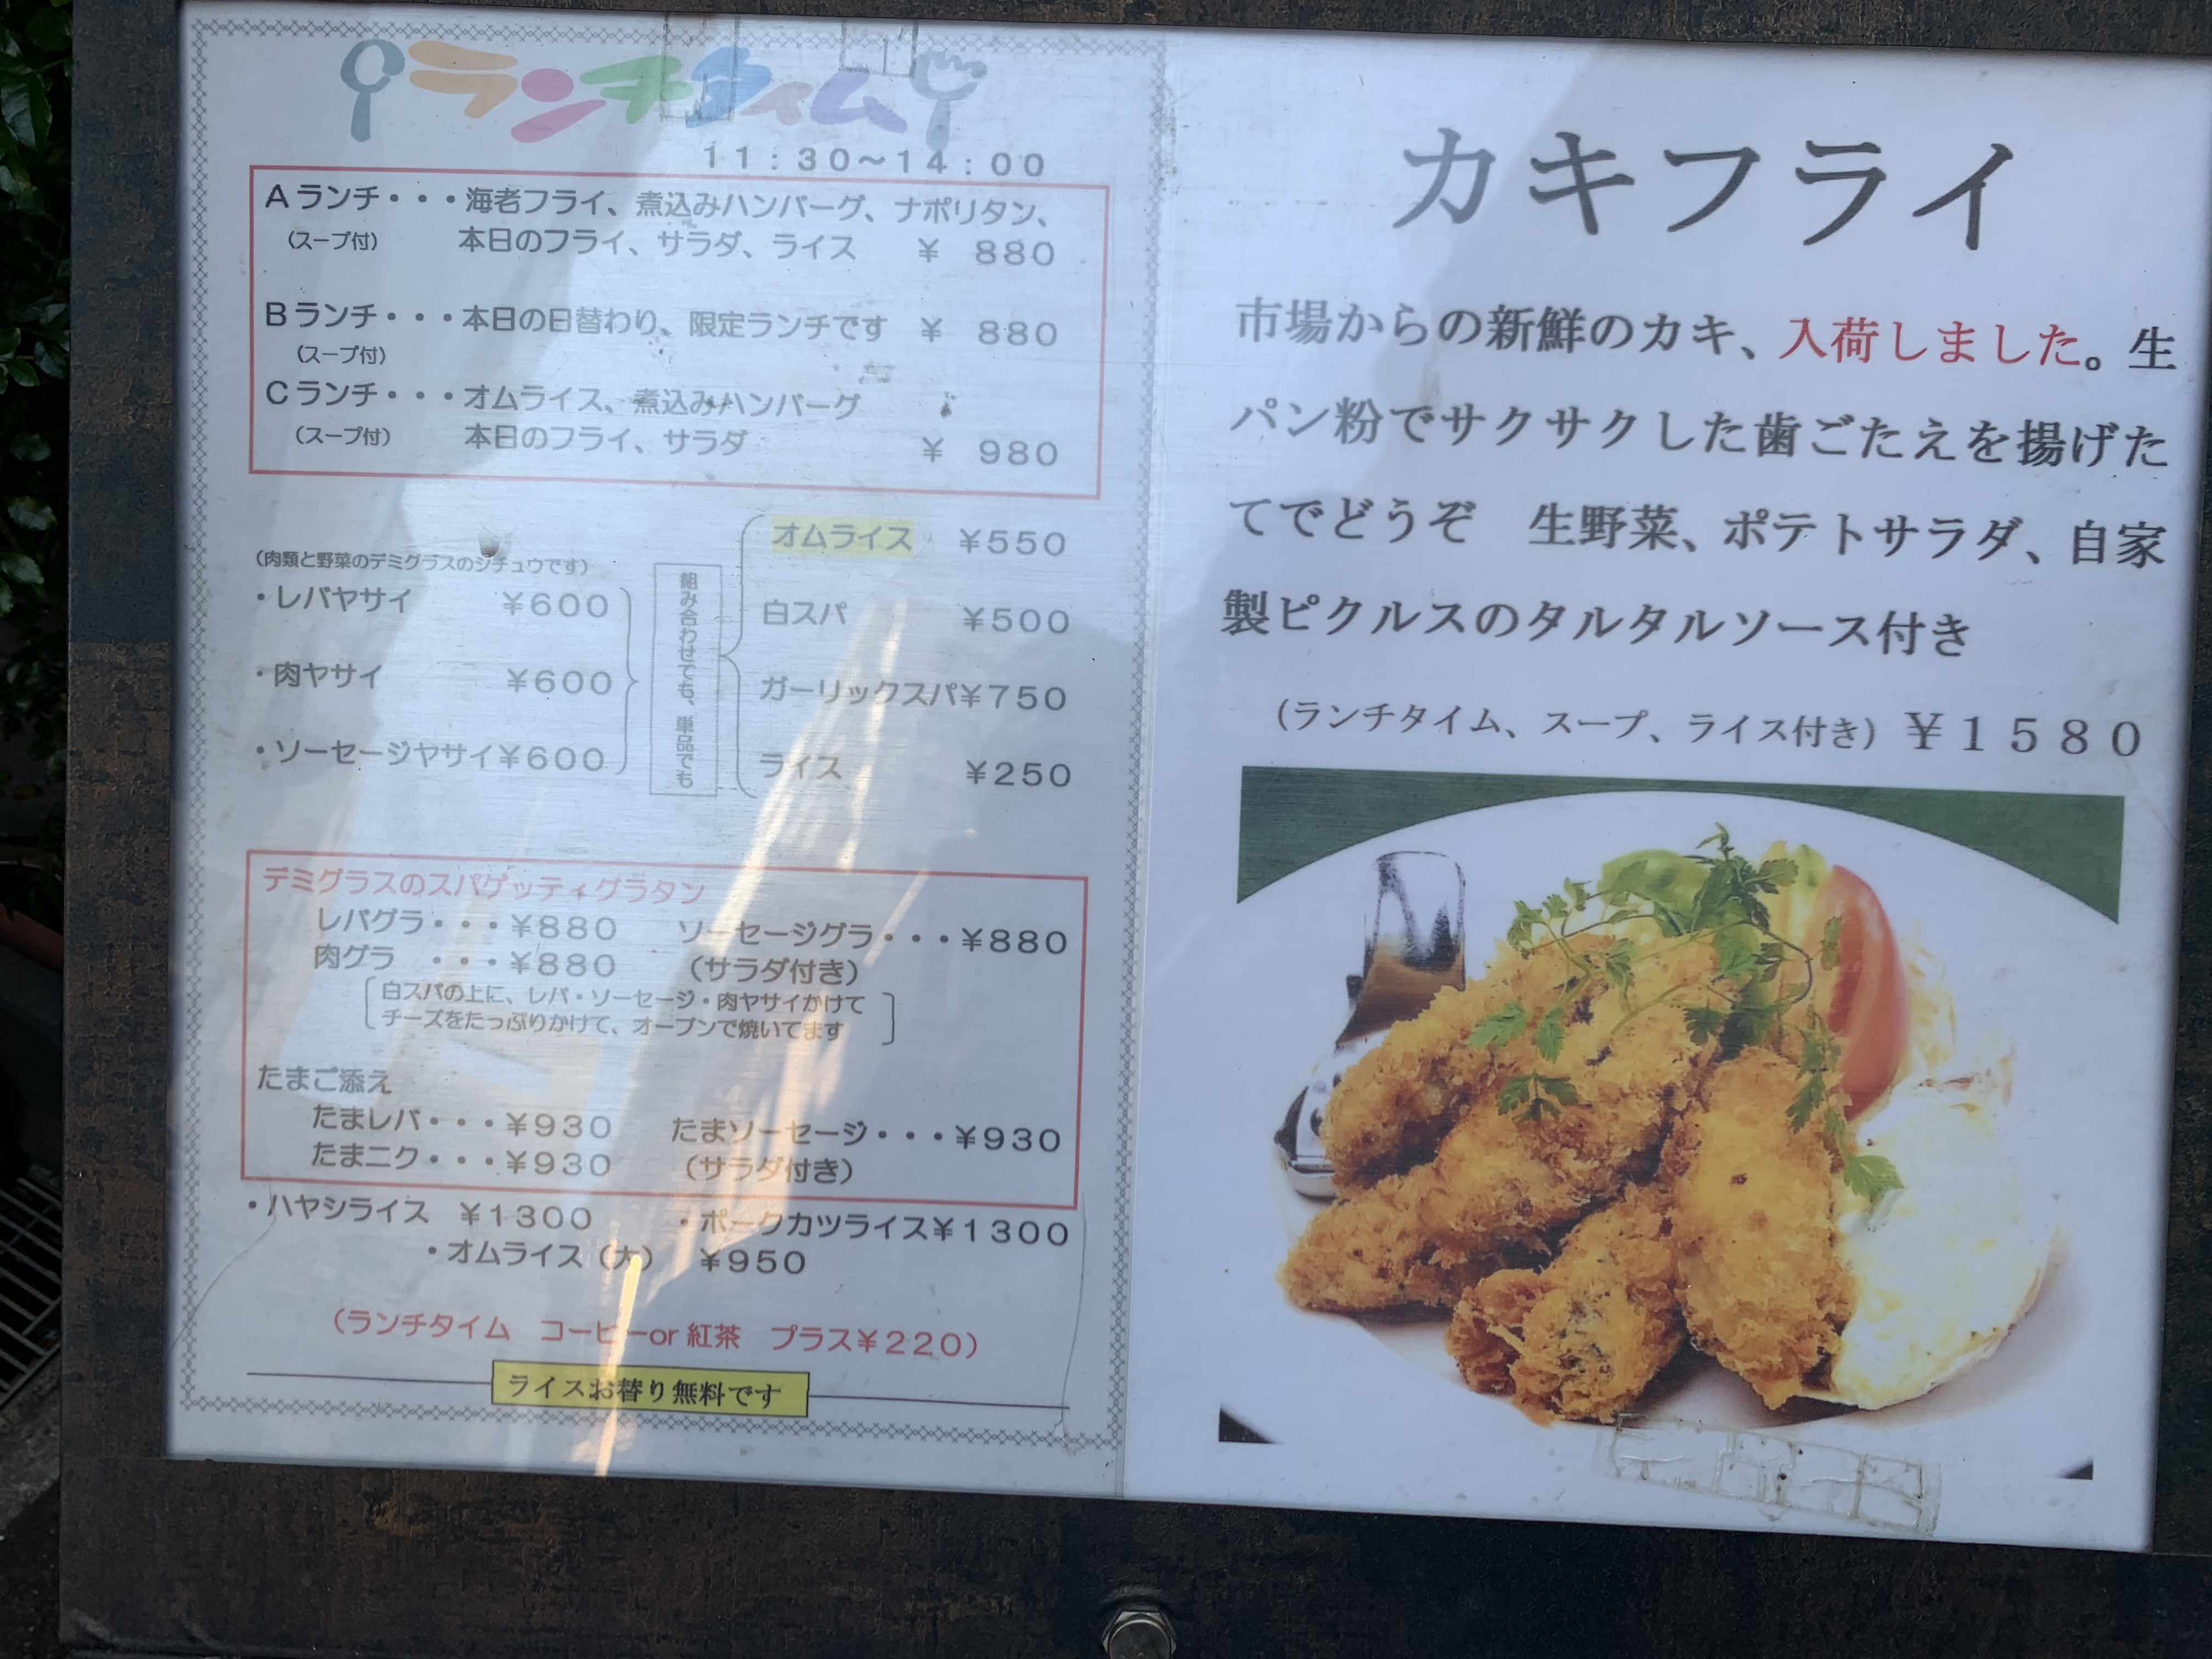 ランチタイム
11:30～14:00
Aランチ・・・海老フライ、煮込みハンバーグ、ナポリタン、
(スープ付) 本日のフライ、サラダ、ライス ¥ 880
Bランチ・・・本日の日替わり、限定ランチです ¥ 880
(スープ付)
Cランチ・・・オムライス、煮込みハンバーグ
(スープ付) 本日のフライ、サラダ ¥ 980
(肉類と野菜のデミグラスのシチュウです)
・レバヤサイ ¥600
・肉ヤサイ ¥600
・ソーセージヤサイ¥600
組み合わせでも、単品でも
オムライス ¥550
白スパ ¥500
ガーリックスパ¥750
ライス ¥250
デミグラスのスパゲッティグラタン
レバグラ・・・¥880 ソーセージグラ・・・¥880
肉グラ ・・・¥880 (サラダ付き)
白スパの上に、レバ・ソーセージ・肉ヤサイかけて
チーズをたっぷりかけて、オーブンで焼いてます
たまご添え
たまレバ・・・¥930 たまソーセージ・・・¥930
たまニク・・・¥930 (サラダ付き)
・ハヤシライス ¥1300 ・ポークカツライス¥1300
・オムライス(大) ¥950
(ランチタイム コーヒーor紅茶 プラス¥220)
ライスお替り無料です
カキフライ
市場からの新鮮のカキ、入荷しました。生
パン粉でサクサクした歯ごたえを揚げた
てでどうぞ 生野菜、ポテトサラダ、自家
製ピクルスのタルタルソース付き
(ランチタイム、スープ、ライス付き) ¥1580